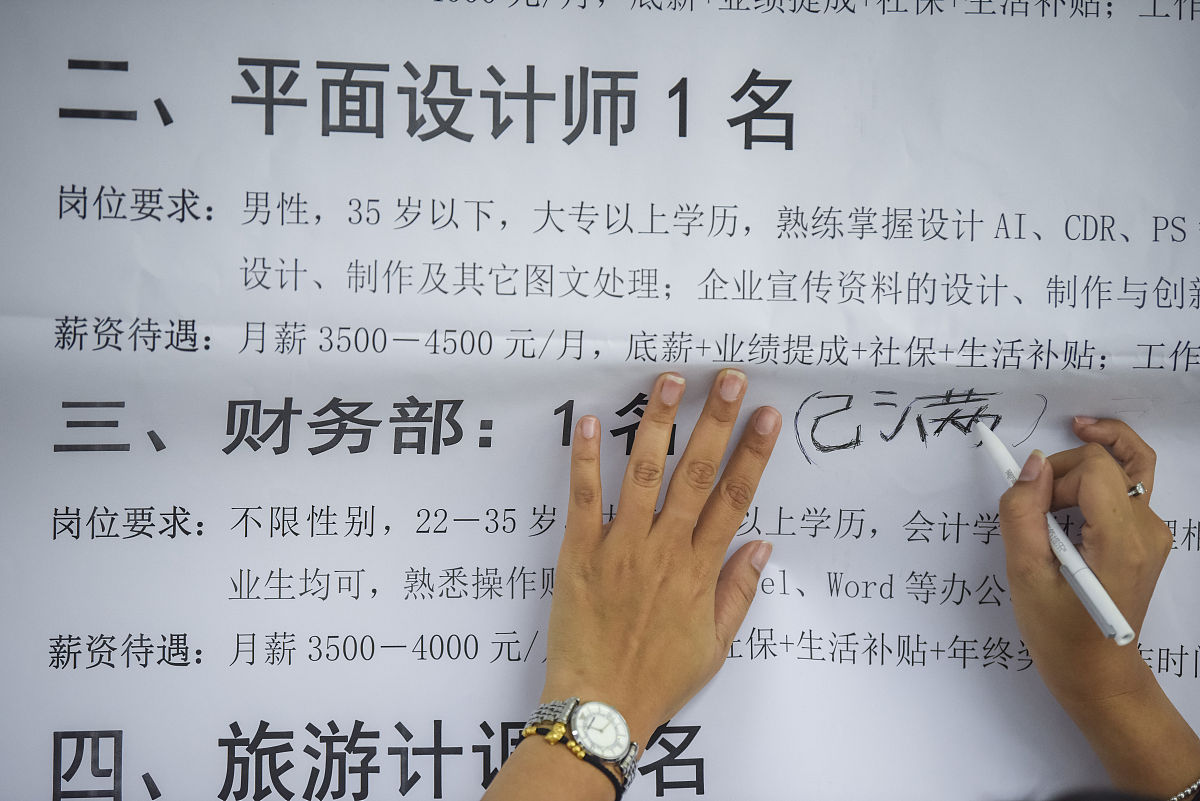 4000 元/月，底薪+业绩提成+社保+生活补贴；工作
二、平面设计师 1 名
岗位要求：男性，35 岁以下，大专以上学历，熟练掌握设计 AI、CDR、PS
设计、制作及其它图文处理；企业宣传资料的设计、制作与创新
薪资待遇：月薪 3500－4500 元/月，底薪+业绩提成+社保+生活补贴；工作
三、财务部：1 名 (已满)
岗位要求：不限性别，22－35 岁 以上学历，会计学 财 理相
业生均可，熟悉操作 el、Word 等办公
薪资待遇：月薪 3500－4000 元/ 社保+生活补贴+年终奖 作时间
四、旅游计调 名